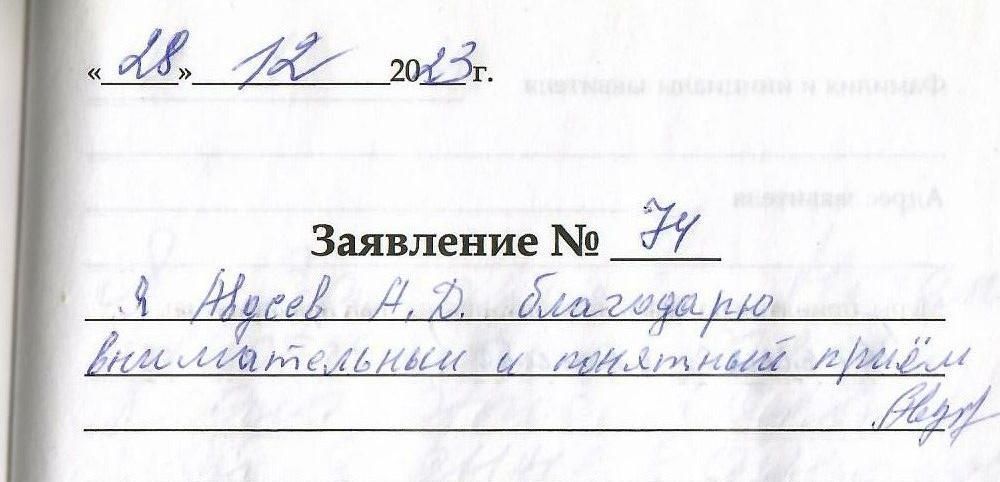 «28» 12 2023г.
Заявление № 74
Я Авдеев А.Д. благодарю
внимательный и понятный приём